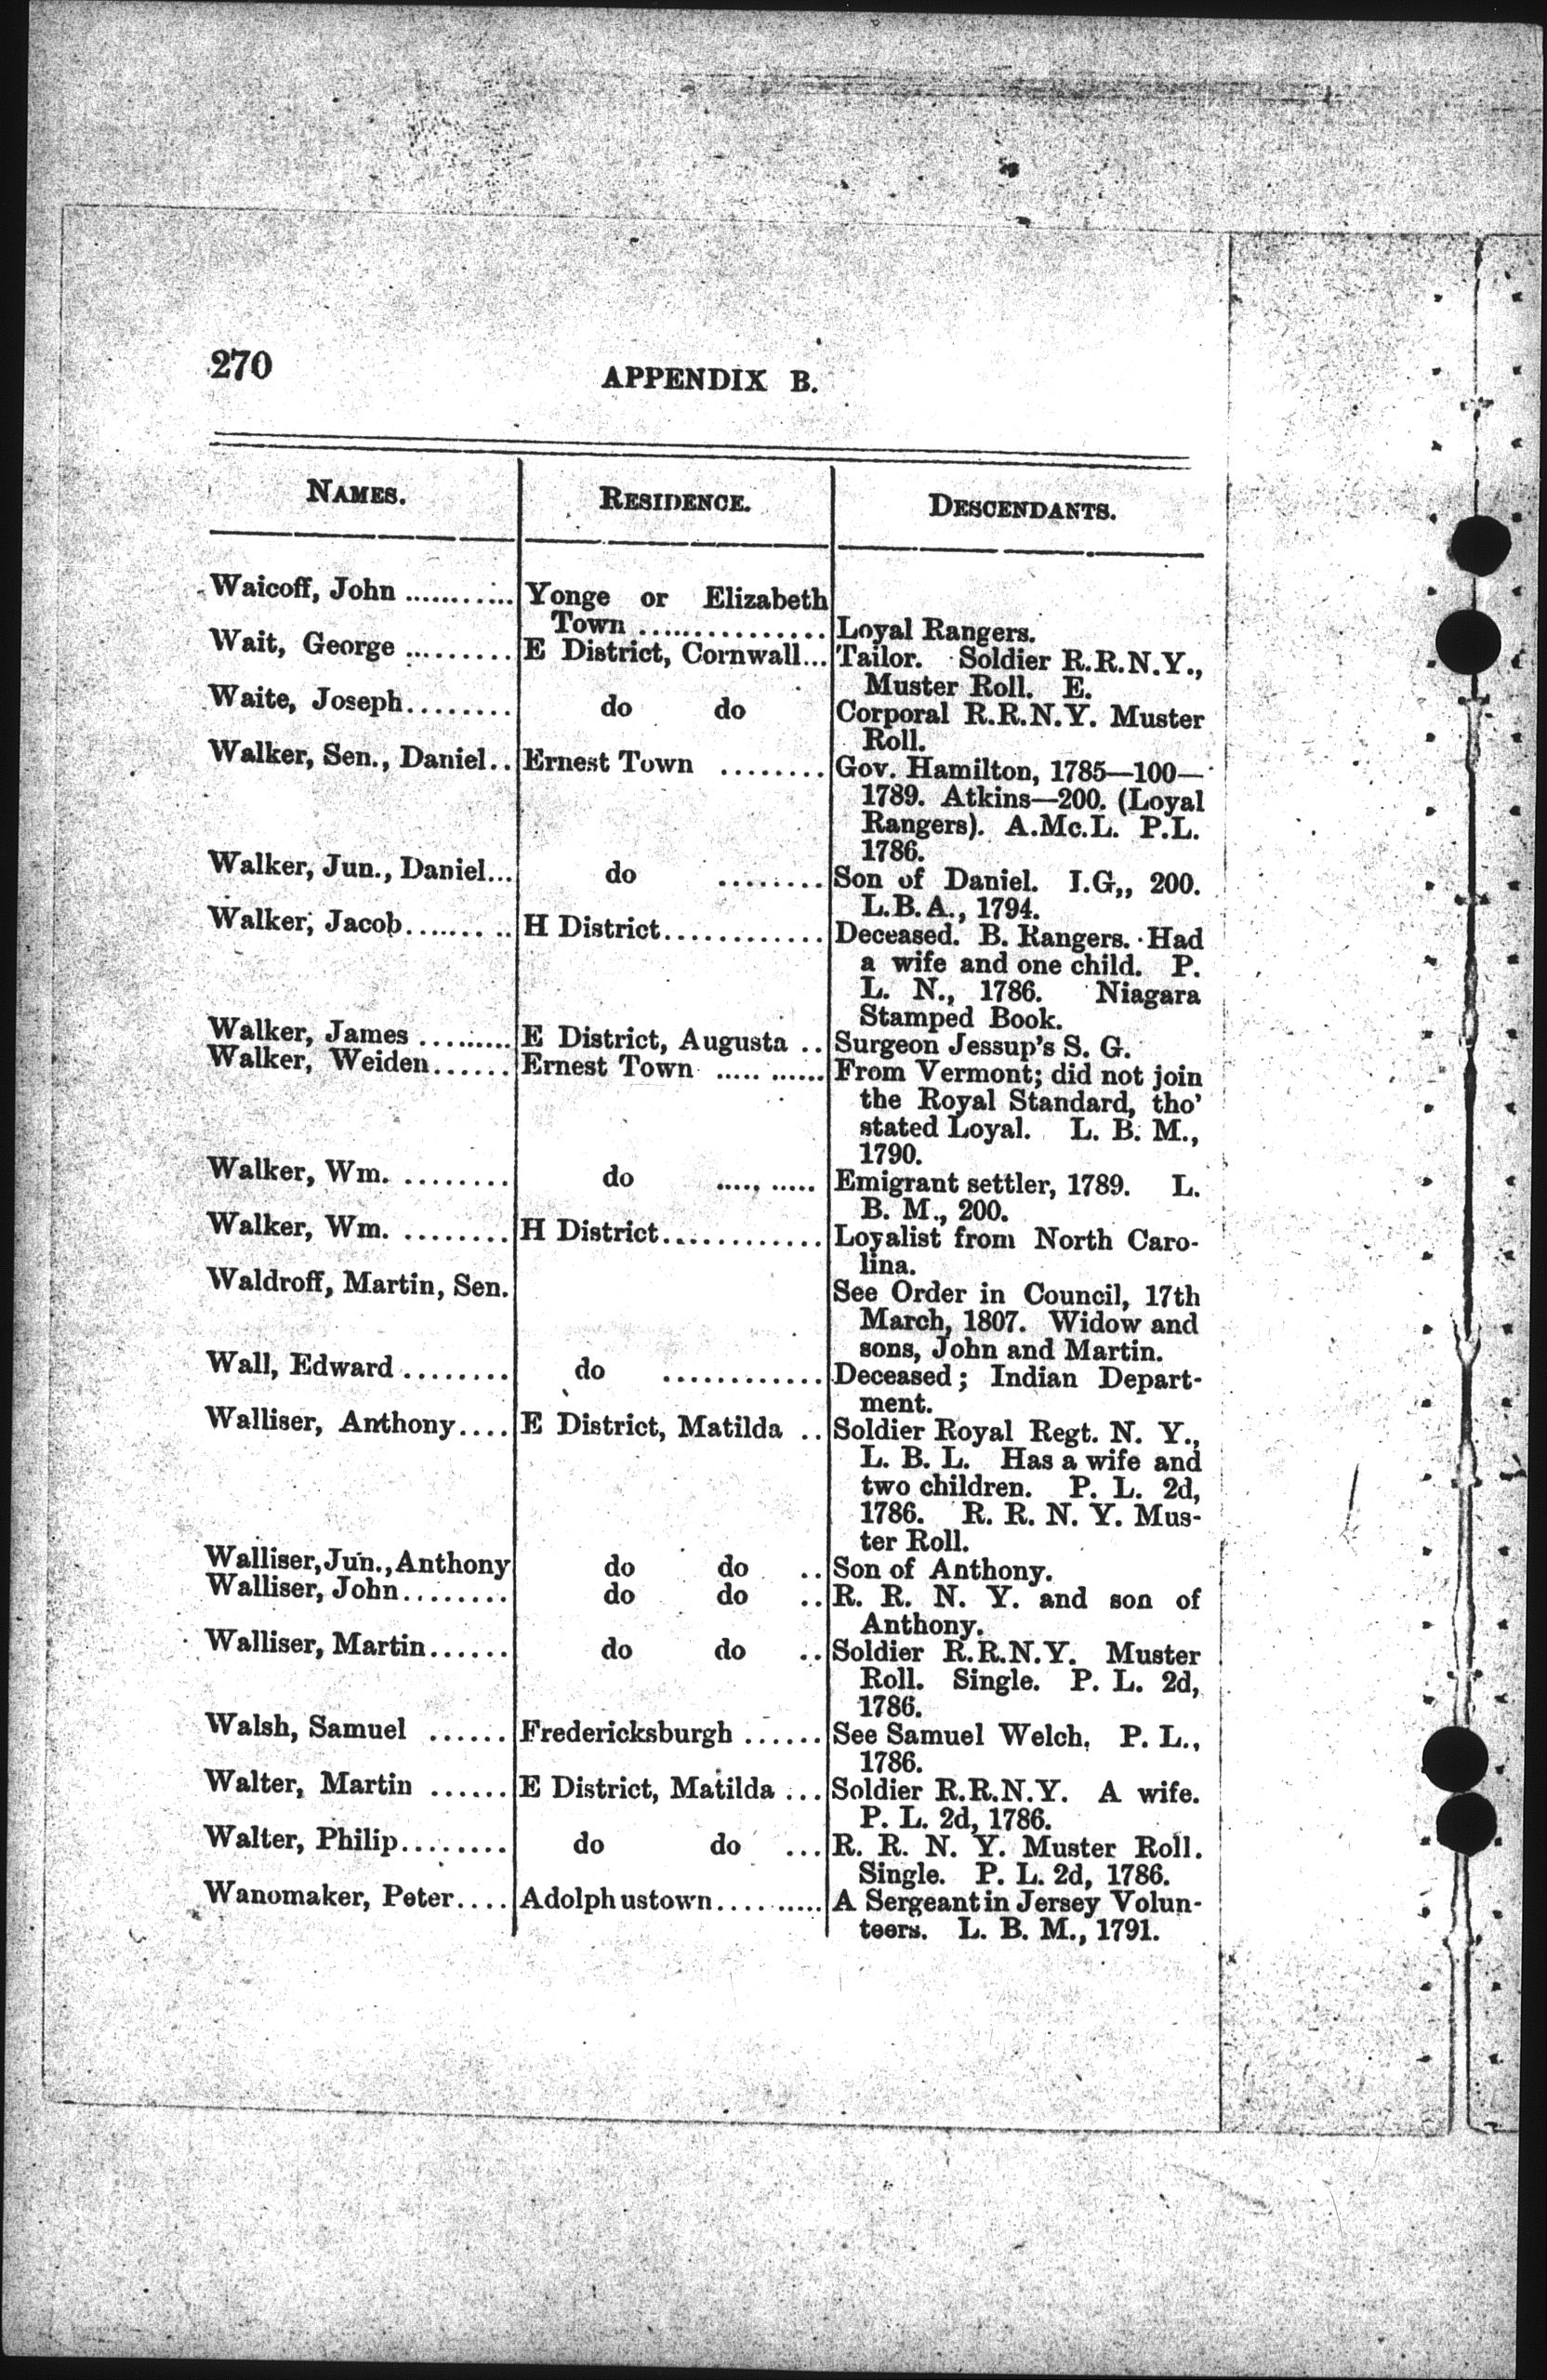 270
APPENDIX B.
NAMES. RESIDENCE. DESCENDANTS.
Waicoff, John ........... Yonge or Elizabeth
Town ............... Loyal Rangers.
Wait, George .......... E District, Cornwall... Tailor. Soldier R.R.N.Y.,
Muster Roll. E.
Waite, Joseph........ do do Corporal R.R.N.Y. Muster
Roll.
Walker, Sen., Daniel.. Ernest Town ........ Gov. Hamilton, 1785—100—
1789. Atkins—200. (Loyal
Rangers). A.Mc.L. P.L.
1786.
Walker, Jun., Daniel... do ........ Son of Daniel. I.G,, 200.
L.B.A., 1794.
Walker, Jacob....... .. H District............. Deceased. B. Rangers. Had
a wife and one child. P.
L. N., 1786. Niagara
Stamped Book.
Walker, James ......... E District, Augusta .. Surgeon Jessup's S. G.
Walker, Weiden...... Ernest Town ..... ...... From Vermont; did not join
the Royal Standard, tho'
stated Loyal. L. B. M.,
1790.
Walker, Wm. ........ do ...., ..... Emigrant settler, 1789. L.
B. M., 200.
Walker, Wm. ........ H District............. Loyalist from North Caro-
lina.
Waldroff, Martin, Sen. See Order in Council, 17th
March, 1807. Widow and
sons, John and Martin.
Wall, Edward ........ do ............ Deceased; Indian Depart-
ment.
Walliser, Anthony.... E District, Matilda .. Soldier Royal Regt. N. Y.,
L. B. L. Has a wife and
two children. P. L. 2d,
1786. R. R. N. Y. Mus-
ter Roll.
Walliser, Jun., Anthony do do .. Son of Anthony.
Walliser, John........ do do .. R. R. N. Y. and son of
Anthony.
Walliser, Martin...... do do .. Soldier R.R.N.Y. Muster
Roll. Single. P. L. 2d,
1786.
Walsh, Samuel ...... Fredericksburgh ...... See Samuel Welch. P. L.,
1786.
Walter, Martin ...... E District, Matilda ... Soldier R.R.N.Y. A wife.
P. L. 2d, 1786.
Walter, Philip........ do do ... R. R. N. Y. Muster Roll.
Single. P. L. 2d, 1786.
Wanomaker, Peter.... Adolphustown.......... A Sergeant in Jersey Volun-
teers. L. B. M., 1791.